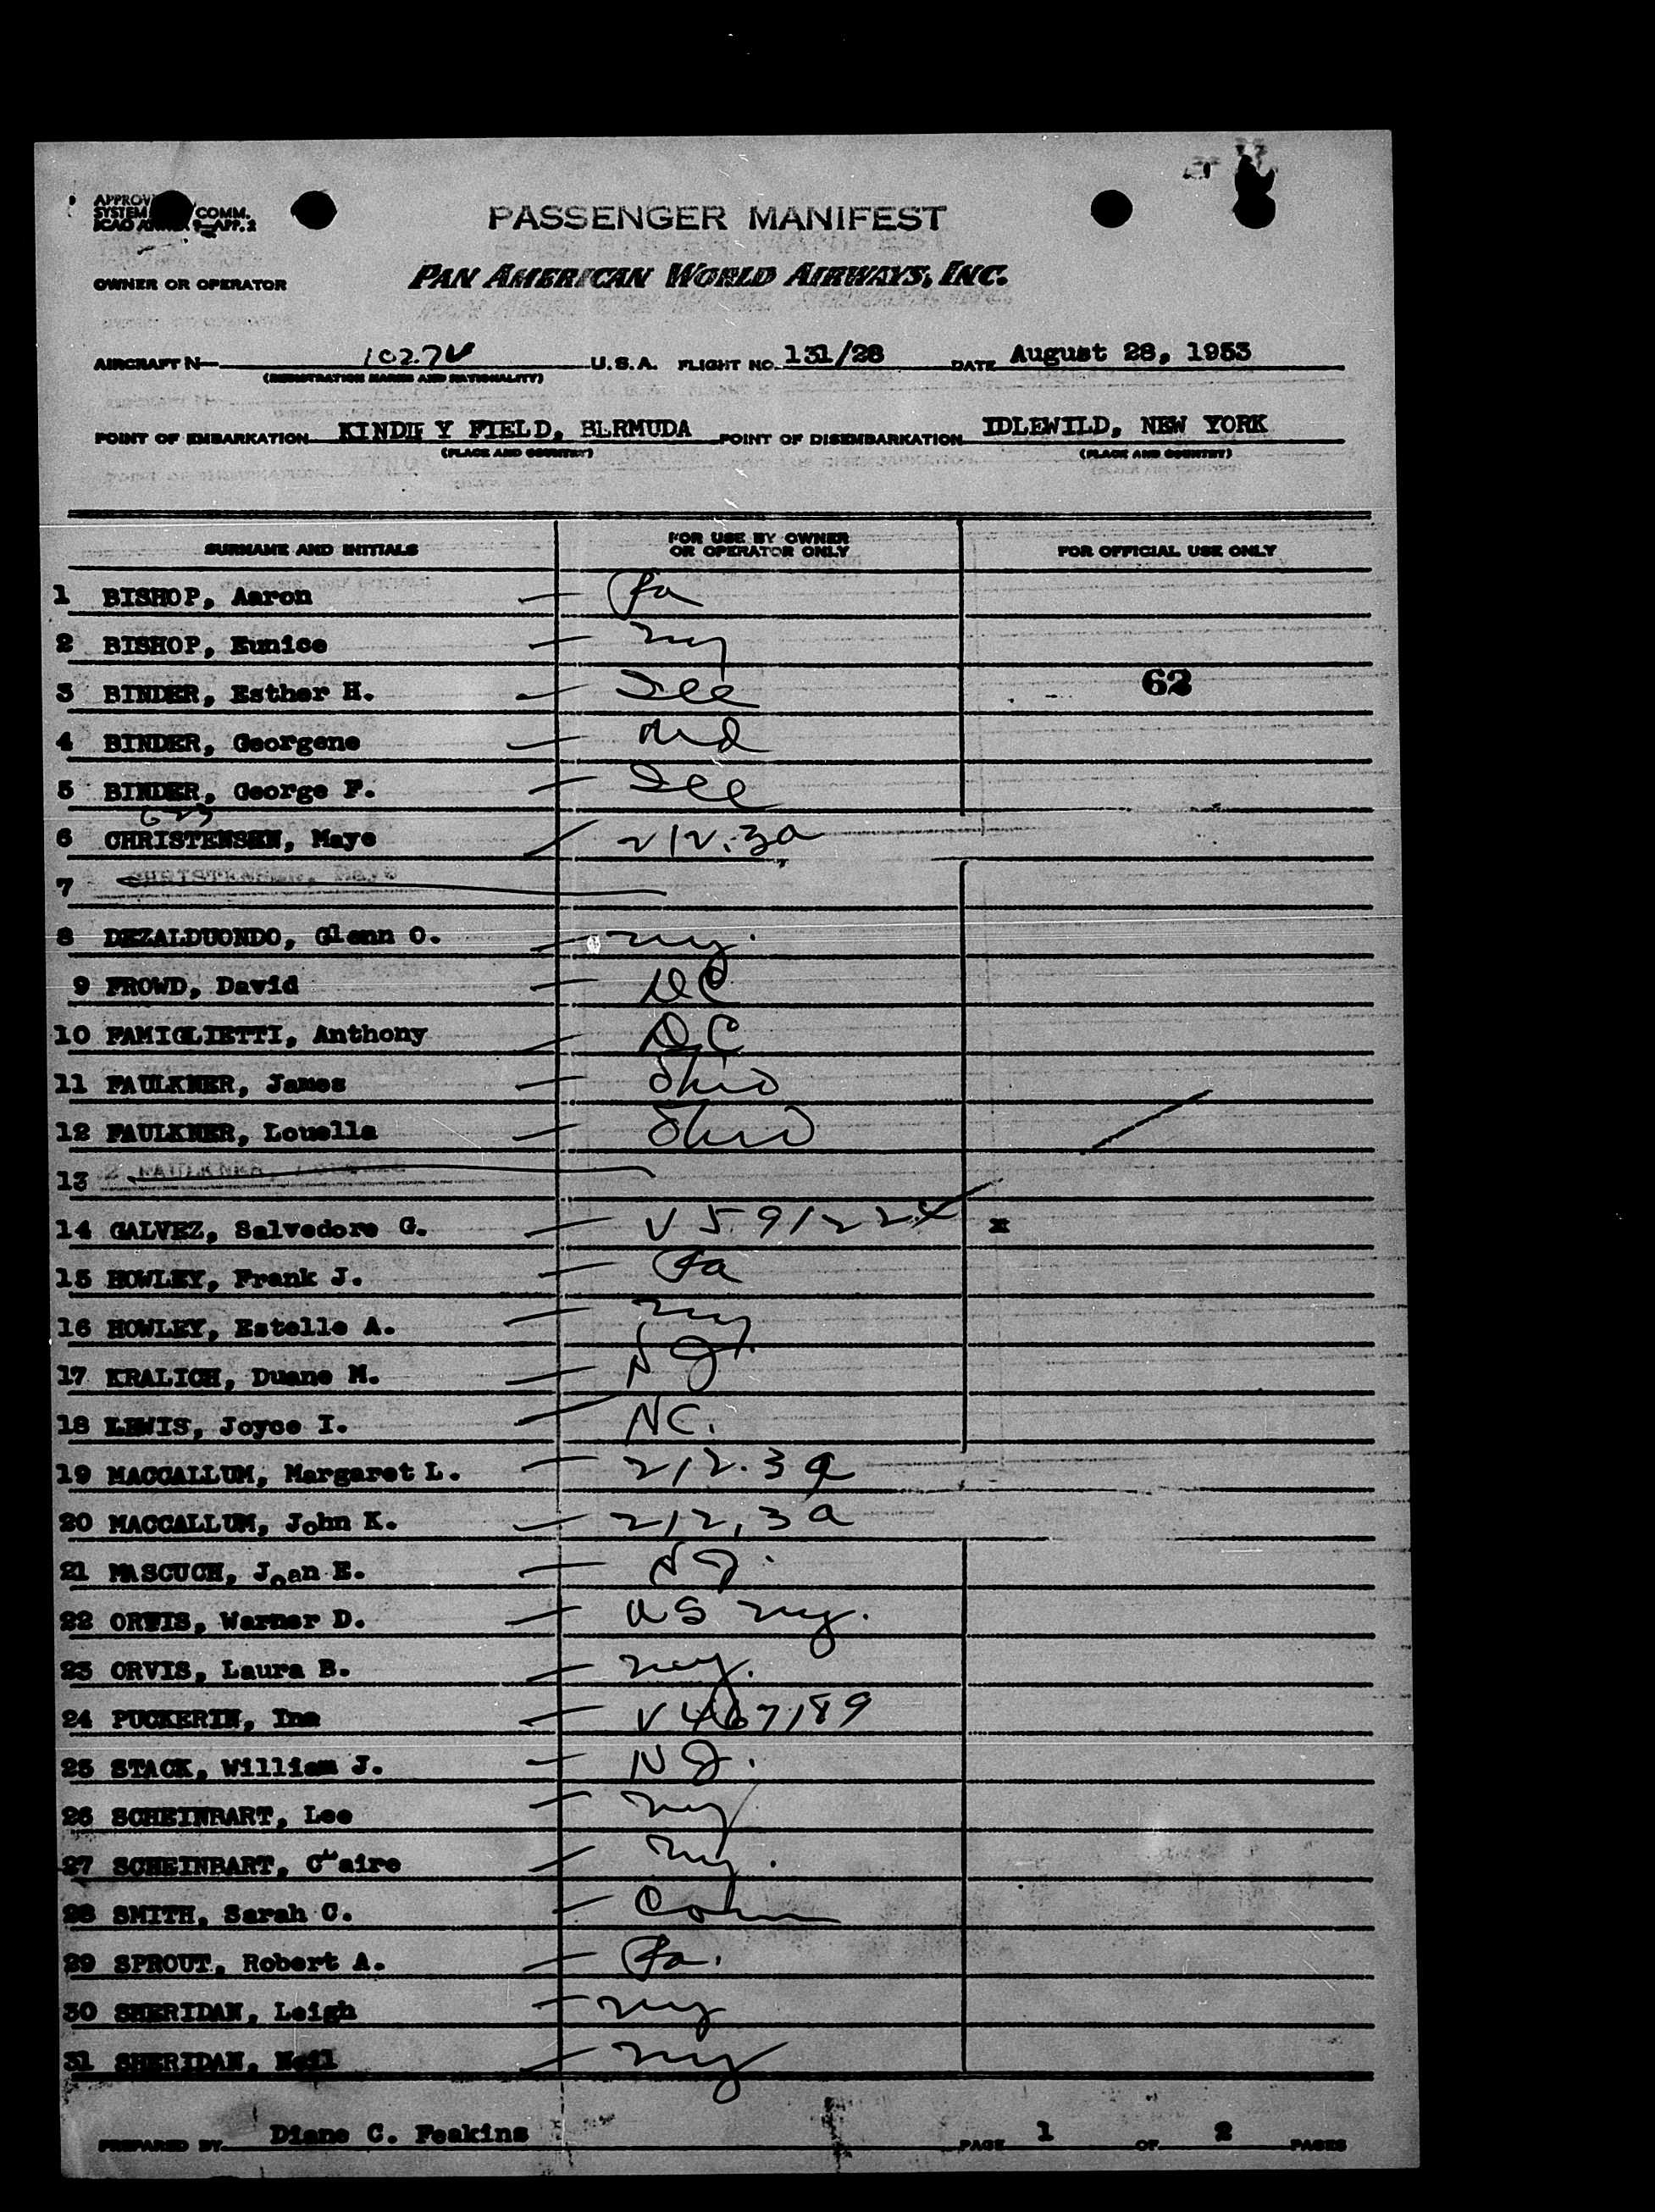 PASSENGER MANIFEST
OWNER OR OPERATOR PAN AMERICAN WORLD AIRWAYS, INC.
AIRCRAFT N 1027V U.S.A. FLIGHT NO. 131/28 DATE August 28, 1953
(REGISTRATION MARKS AND NATIONALITY)
POINT OF EMBARKATION FIELD, POINT OF DISEMBARKATION IDLEWILD, NEW YORK
(PLACE AND COUNTRY) (PLACE AND COUNTRY)
SURNAME AND INITIALS FOR USE BY OWNER OR OPERATOR ONLY FOR OFFICIAL USE ONLY
1 BISHOP, Aaron Pa
2 BISHOP, Eunice ny
3 BINDER, Esther H. Ill 62
4 BINDER, Georgene Md
5 BINDER, George F. Ill
6 CHRISTENSEN, Maye 212.3a
7
8 DEZALDUONDO, Glenn O. ny.
9 FROWD, David DC
10 FAMIGLIETTI, Anthony DC
11 FAULKNER, James Ohio
12 FAULKNER, Louella Ohio
13
14 GALVEZ, Salvedore G. V 591224 x
15 HOWLEY, Frank J. Pa
16 HOWLEY, Estelle A. ny
17 KRALICH, Duane M. NJ
18 LEWIS, Joyce I. NC.
19 MACCALLUM, Margaret L. 212.3a
20 MACCALLUM, John K. 212.3a
21 MASCUCH, Joan E. NJ.
22 ORVIS, Warner D. US ny.
23 ORVIS, Laura B. ny.
24 PUCKERIN, Ina V467189
25 STACK, William J. NJ.
26 SCHEINBART, Lee ny
27 SCHEINBART, Claire ny.
28 SMITH, Sarah C. Conn
29 SPROUT, Robert A. Pa.
30 SHERIDAN, Leigh ny
31 SHERIDAN, Neil ny
PREPARED BY Diane C. Feakins PAGE 1 OF 2 PAGES